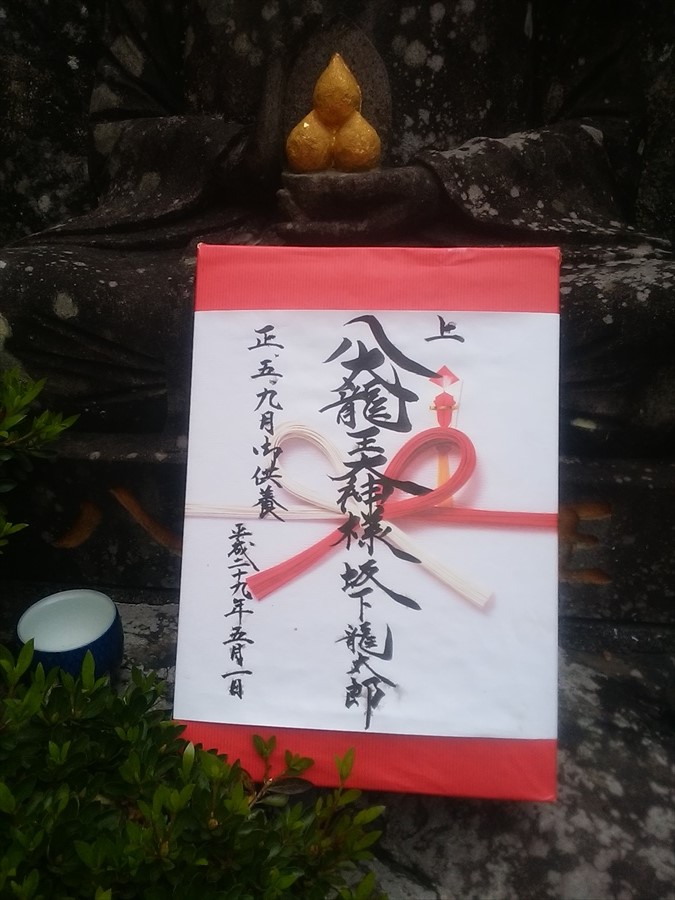 上
八大龍王大神様 坂下龍太郎
正、五、九月御供養
平成二十九年五月一日